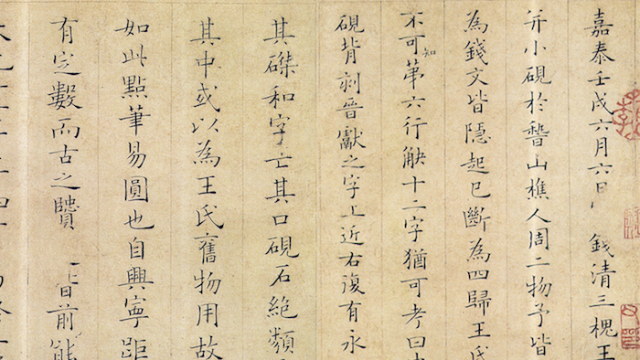 嘉泰壬戌六月六日錢清三槐王
并小硯於稽山樵人周二物予皆
為錢文皆隱起已斷為四歸王氏
不可知苐六行觖十二字猶可考曰
硯背刻晉獻之字上近右復有永
其磔和字亡其口硯石絕類
其中或以為王氏舊物用故
如此點筆易圓也自興寧距
有定數而古之日前能